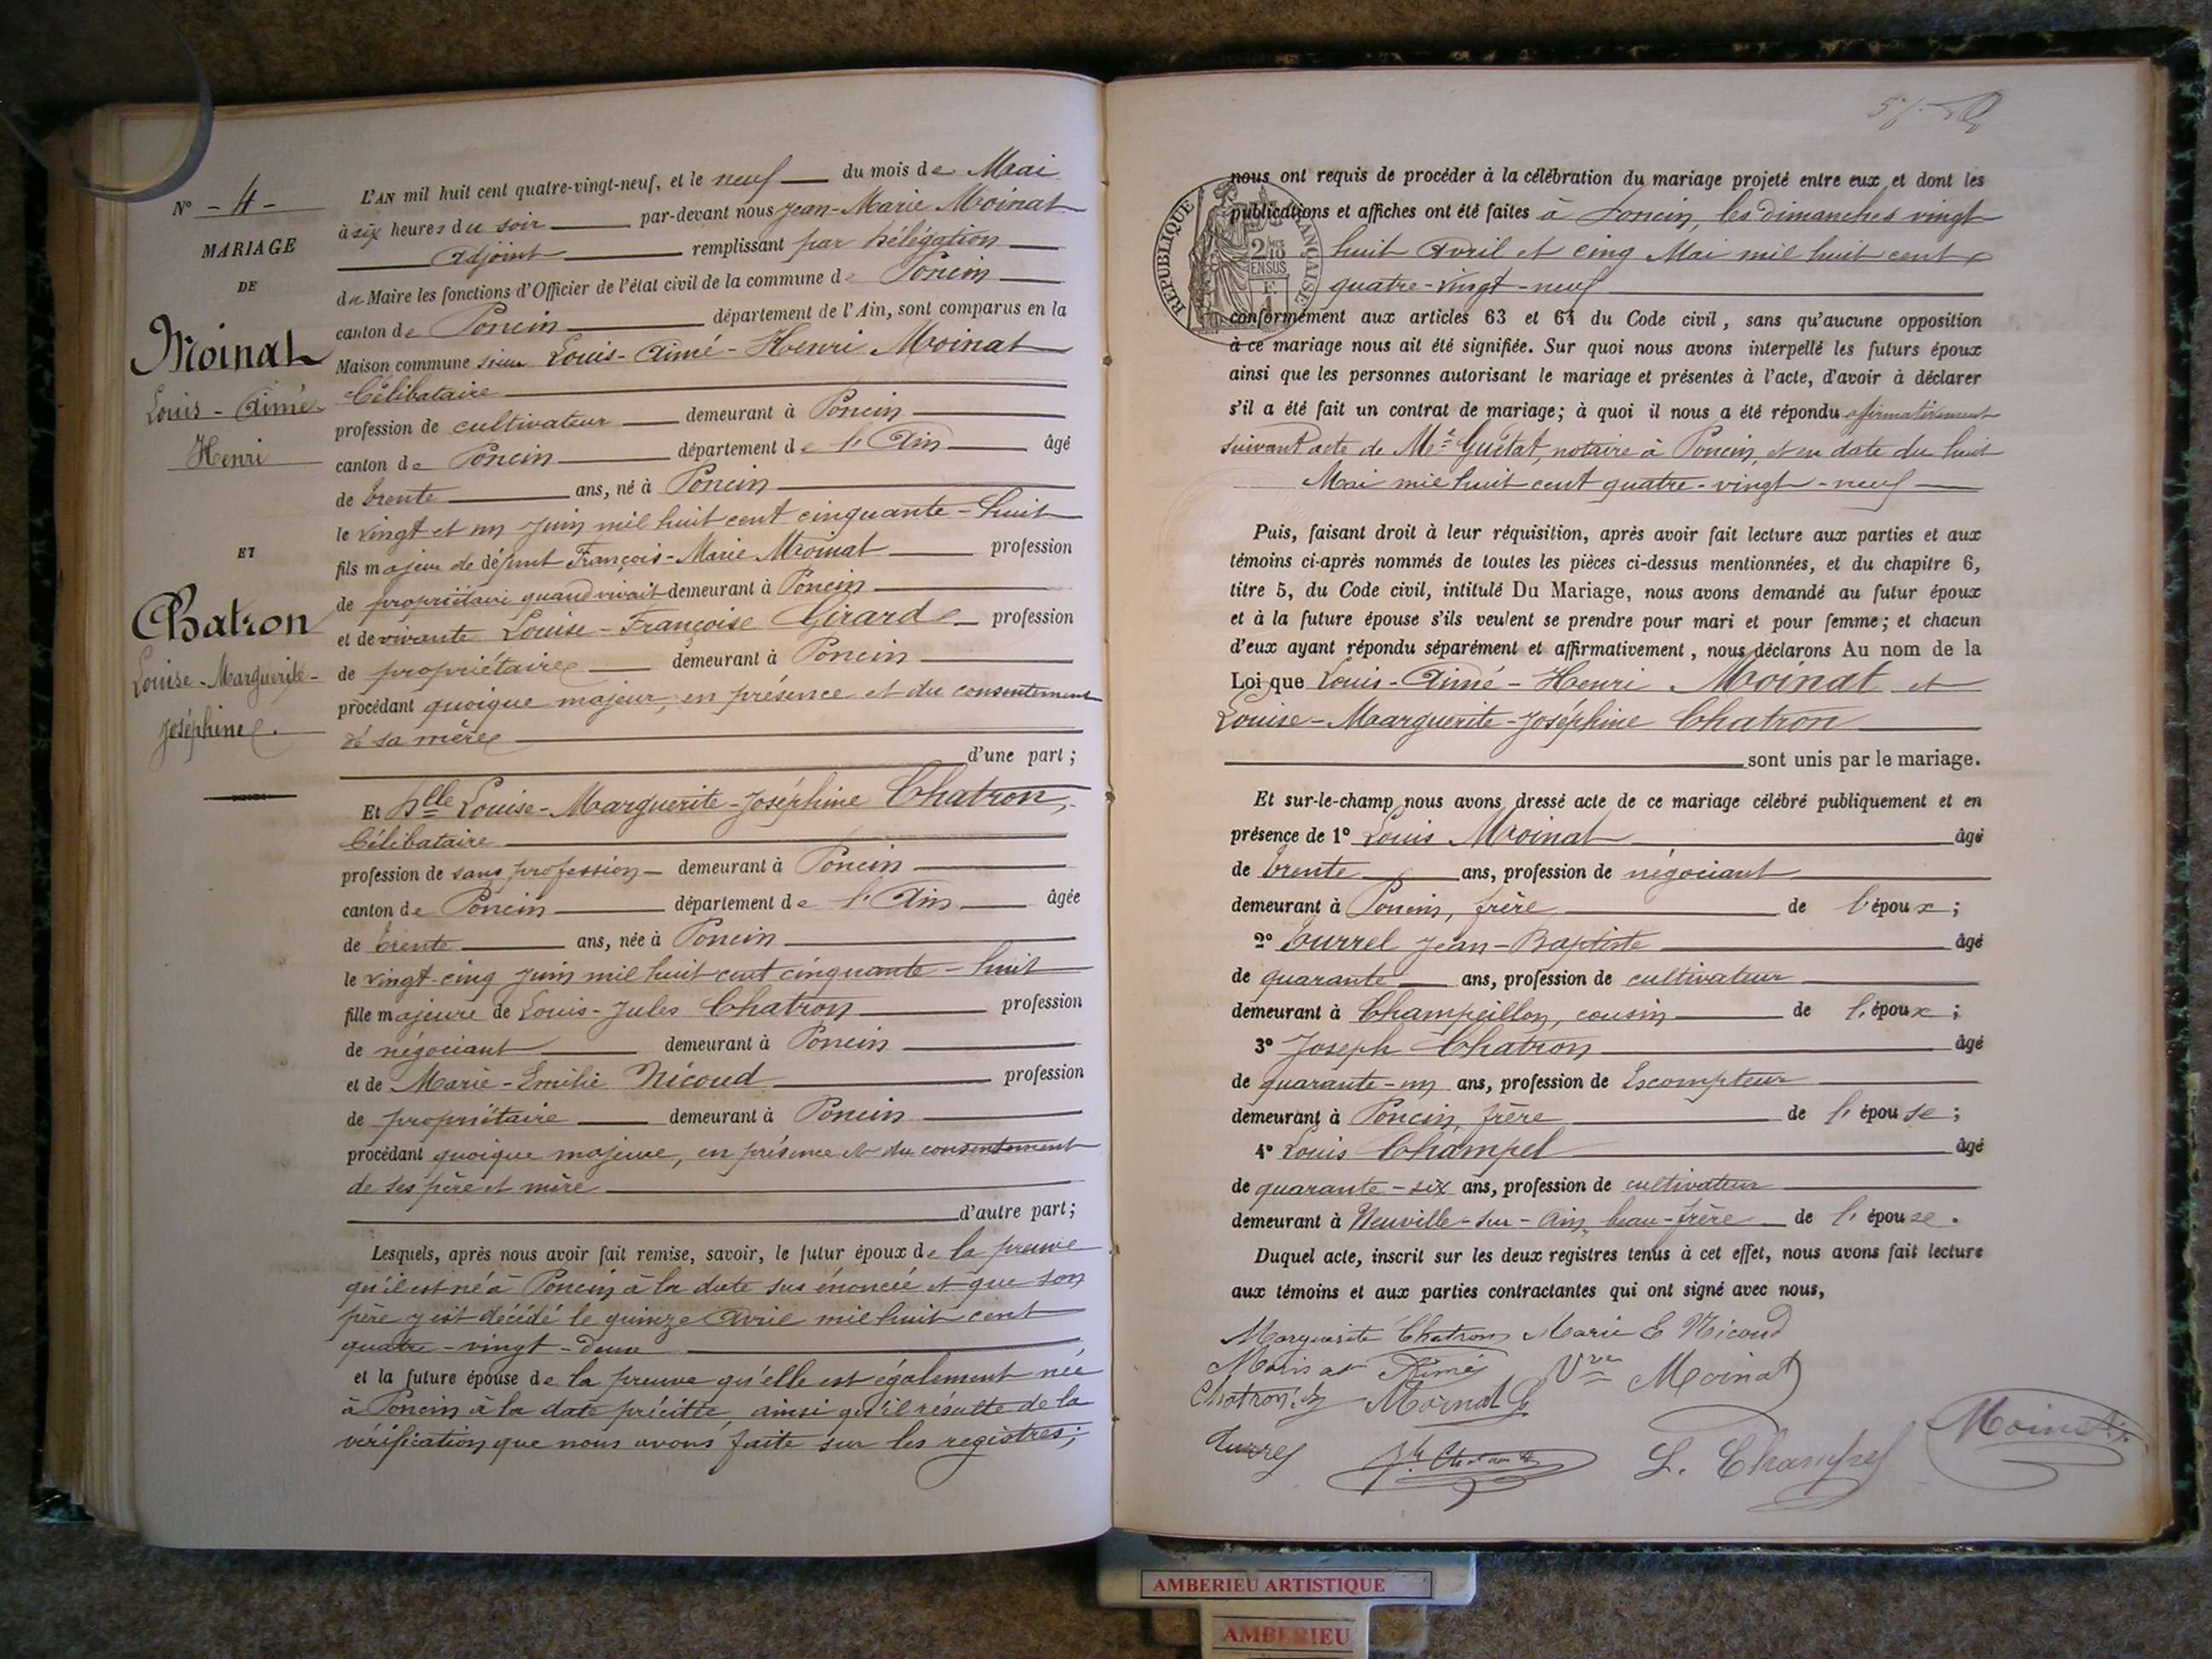 N° - 4 -
MARIAGE
DE
Moinat
Louis - Aimé -
Henri
ET
Chatron
Louise - Marguerite -
Joséphine.
L'AN mil huit cent quatre-vingt-neuf, et le neuf du mois de Mai
à six heures du soir par-devant nous Jean-Marie Moinat
Adjoint remplissant par délégation
du Maire les fonctions d'Officier de l'état civil de la commune de Poncin
canton de Poncin département de l'Ain, sont comparus en la
Maison commune sieur Louis-Aimé-Henri Moinat
Célibataire
profession de cultivateur demeurant à Poncin
canton de Poncin département de l'Ain âgé
de trente ans, né à Poncin
le vingt et un Juin mil huit cent cinquante-huit
fils majeur de défunt François-Marie Moinat profession
de propriétaire quand vivait demeurant à Poncin
et de vivante Louise-Françoise Girard profession
de propriétaire demeurant à Poncin
procédant quoique majeur, en présence et du consentement
de sa mère
d'une part ;
Et Dlle Louise-Marguerite-Joséphine Chatron,
Célibataire
profession de sans profession demeurant à Poncin
canton de Poncin département de l'Ain âgée
de trente ans, née à Poncin
le vingt-cinq Juin mil huit cent cinquante-huit
fille majeure de Louis-Jules Chatron profession
de négociant demeurant à Poncin
et de Marie-Emilie Nicoud profession
de propriétaire demeurant à Poncin
procédant quoique majeure, en présence et du consentement
de ses père et mère
d'autre part ;
Lesquels, après nous avoir fait remise, savoir, le futur époux de la preuve
qu'il est né à Poncin à la date sus énoncée et que son
père y est décédé le quinze Avril mil huit cent
quatre-vingt-deux
et la future épouse de la preuve qu'elle est également née
à Poncin à la date précitée, ainsi qu'il résulte de la
vérification que nous avons faite sur les registres ;
nous ont requis de procéder à la célébration du mariage projeté entre eux, et dont les
publications et affiches ont été faites à Poncin, les dimanches vingt
huit Avril et cinq Mai mil huit cent
quatre-vingt-neuf
RÉPUBLIQUE FRANÇAISE
2/10 EN SUS
conformément aux articles 63 et 64 du Code civil, sans qu'aucune opposition
à ce mariage nous ait été signifiée. Sur quoi nous avons interpellé les futurs époux
ainsi que les personnes autorisant le mariage et présentes à l'acte, d'avoir à déclarer
s'il a été fait un contrat de mariage ; à quoi il nous a été répondu affirmativement
suivant acte de Me Guitat, notaire à Poncin, et en date du huit
Mai mil huit cent quatre-vingt-neuf
Puis, faisant droit à leur réquisition, après avoir fait lecture aux parties et aux
témoins ci-après nommés de toutes les pièces ci-dessus mentionnées, et du chapitre 6,
titre 5, du Code civil, intitulé Du Mariage, nous avons demandé au futur époux
et à la future épouse s'ils veulent se prendre pour mari et pour femme ; et chacun
d'eux ayant répondu séparément et affirmativement, nous déclarons Au nom de la
Loi que Louis-Aimé-Henri Moinat et
Louise-Marguerite-Joséphine Chatron
sont unis par le mariage.
Et sur-le-champ nous avons dressé acte de ce mariage célébré publiquement et en
présence de 1° Louis Moinat âgé
de trente ans, profession de négociant
demeurant à Poncin, frère de l'époux ;
2° Turrel Jean-Baptiste âgé
de quarante ans, profession de cultivateur
demeurant à Champeillon, cousin de l'époux ;
3° Joseph Chatron âgé
de quarante-un ans, profession de Escompteur
demeurant à Poncin, frère de l'épouse ;
4° Louis Champel âgé
de quarante-six ans, profession de cultivateur
demeurant à Neuville-sur-Ain, beau-frère de l'épouse.
Duquel acte, inscrit sur les deux registres tenus à cet effet, nous avons fait lecture
aux témoins et aux parties contractantes qui ont signé avec nous,
Marguerite Chatron Marie E Nicoud
Moinat Aimé Vve Moinat
Chatron Moinat L
Turrel L. Champel Moinat
AMBERIEU ARTISTIQUE
AMBERIEU